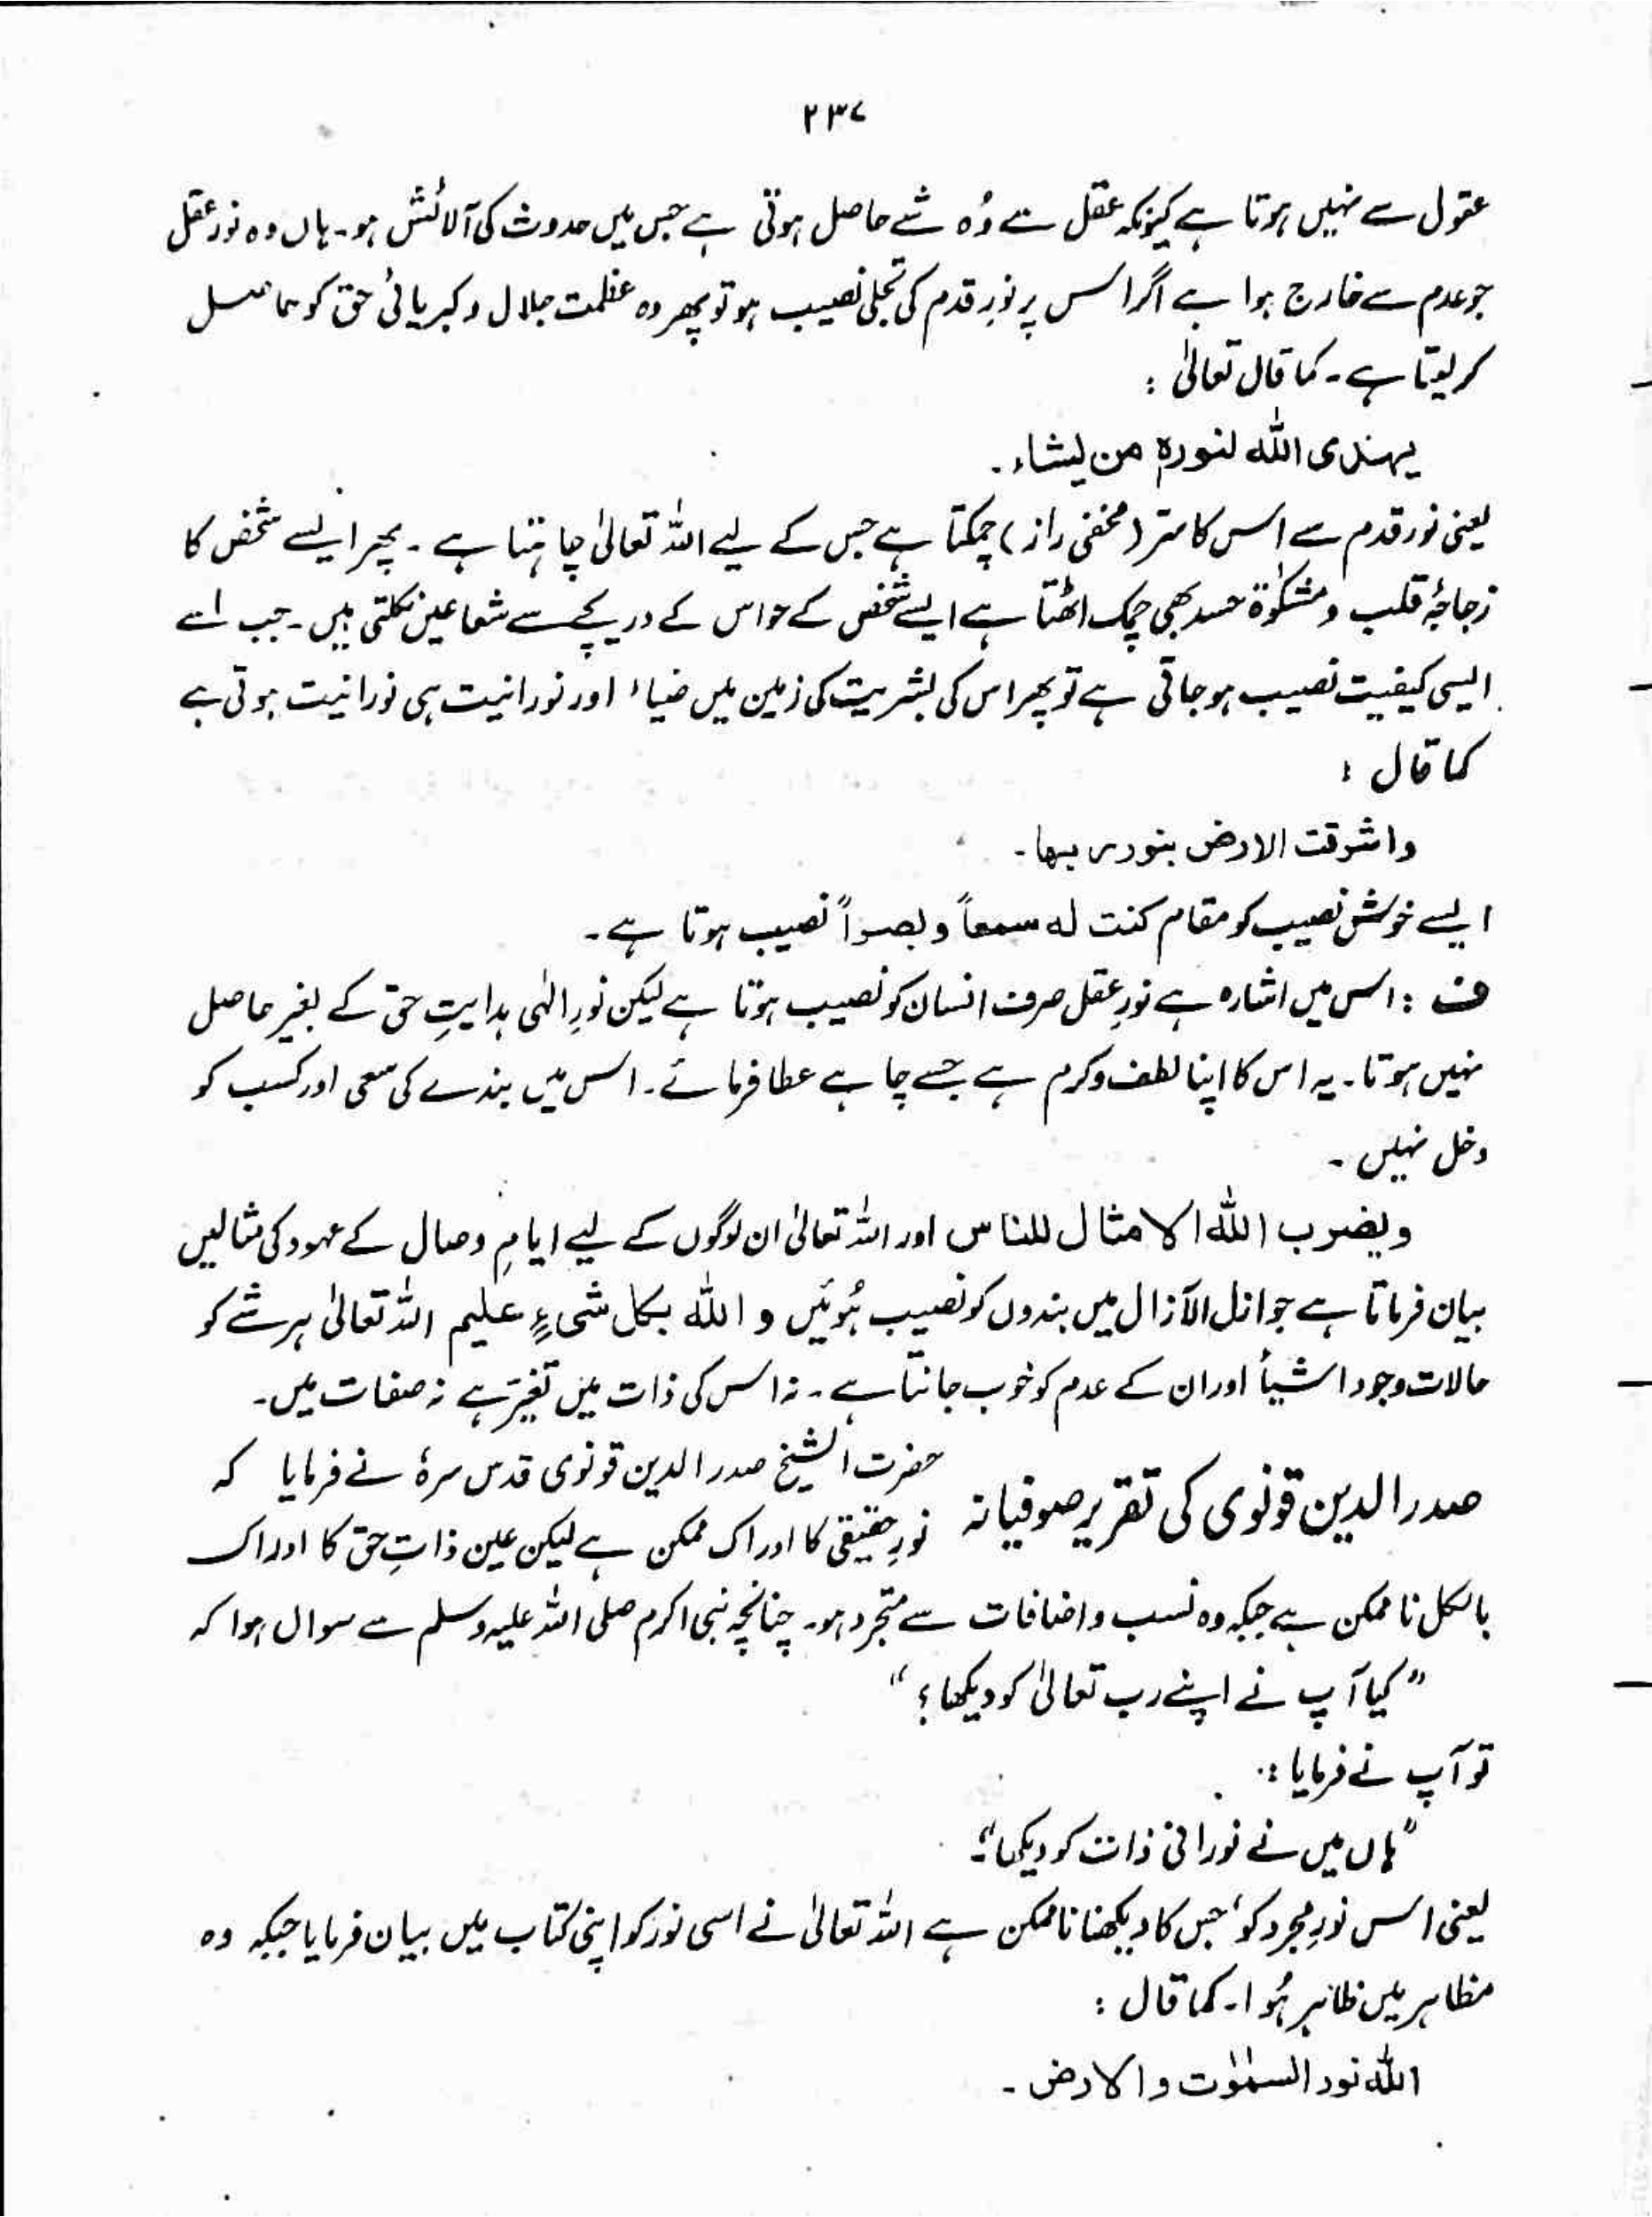 ۲۳۷
عقول سے نہیں ہوتا ہے کیونکہ عقل سے وُہ شے حاصل ہوتی ہے جس میں حدوث کی آلائش ہو۔ ہاں وہ نور عقل
جو عدم سے خارج ہوا ہے اگر اس پر نورِ قدم کی تجلی نصیب ہو تو پھر وہ عظمت جلال و کبریائی حق کو حاصل
کر لیتا ہے۔ کما قال تعالیٰ :
یہدی اللہ لنورہ من یشاء۔
یعنی نور قدم سے اس کا سّر (مخفی راز) چمکتا ہے جس کے لیے اللہ تعالیٰ چاہتا ہے۔ پھر ایسے شخص کا
زجاجۂ قلب و مشکوٰۃ جسد بھی چمک اٹھتا ہے ایسے شخص کے حواس کے دریچے سے شعاعیں نکلتی ہیں۔ جب اسے
ایسی کیفیت نصیب ہو جاتی ہے تو پھر اس کی بشریت کی زمین میں ضیاء اور نورانیت ہی نورانیت ہوتی ہے
کما قال :
واشرقت الارض بنور ربہا۔
ایسے خوش نصیب کو مقام کنت لہ سمعاً و بصراً نصیب ہوتا ہے۔
ف : اس میں اشارہ ہے نورِ عقل صرف انسان کو نصیب ہوتا ہے لیکن نورِ الٰہی ہدایتِ حق کے بغیر حاصل
نہیں ہوتا۔ یہ اس کا اپنا لطف و کرم ہے جسے چاہے عطا فرمائے۔ اس میں بندے کی سعی اور کسب کو
دخل نہیں۔
ویضرب اللہ الامثال للناس اور اللہ تعالیٰ ان لوگوں کے لیے ایامِ وصال کے عہود کی مثالیں
بیان فرماتا ہے جو ازل الآزال میں بندوں کو نصیب ہُوئیں و اللہ بکل شیءٍ علیم اللہ تعالیٰ ہر شے کو
حالات وجود اشیأ اور ان کے عدم کو خوب جانتا ہے۔ نہ اس کی ذات میں تغیّر ہے نہ صفات میں۔
صدر الدین قونوی کی تقریر صوفیانہ حضرت الشیخ صدر الدین قونوی قدس سرہٗ نے فرمایا کہ
نورِ حقیقی کا ادراک ممکن ہے لیکن عین ذاتِ حق کا ادراک
بالکل ناممکن ہے جبکہ وہ نسب و اضافات سے متجرد ہو۔ چنانچہ نبی اکرم صلی اللہ علیہ وسلم سے سوال ہوا کہ
"کیا آپ نے اپنے رب تعالیٰ کو دیکھا؟"
تو آپ نے فرمایا :
"ہاں میں نے نورانی ذات کو دیکھا۔"
یعنی اس نورِ مجرد کو، جس کا دیکھنا ناممکن ہے اللہ تعالیٰ نے اسی نور کو اپنی کتاب میں بیان فرمایا جبکہ وہ
مظاہر میں ظاہر ہُوا۔ کما قال :
اللہ نور السمٰوٰت والارض۔